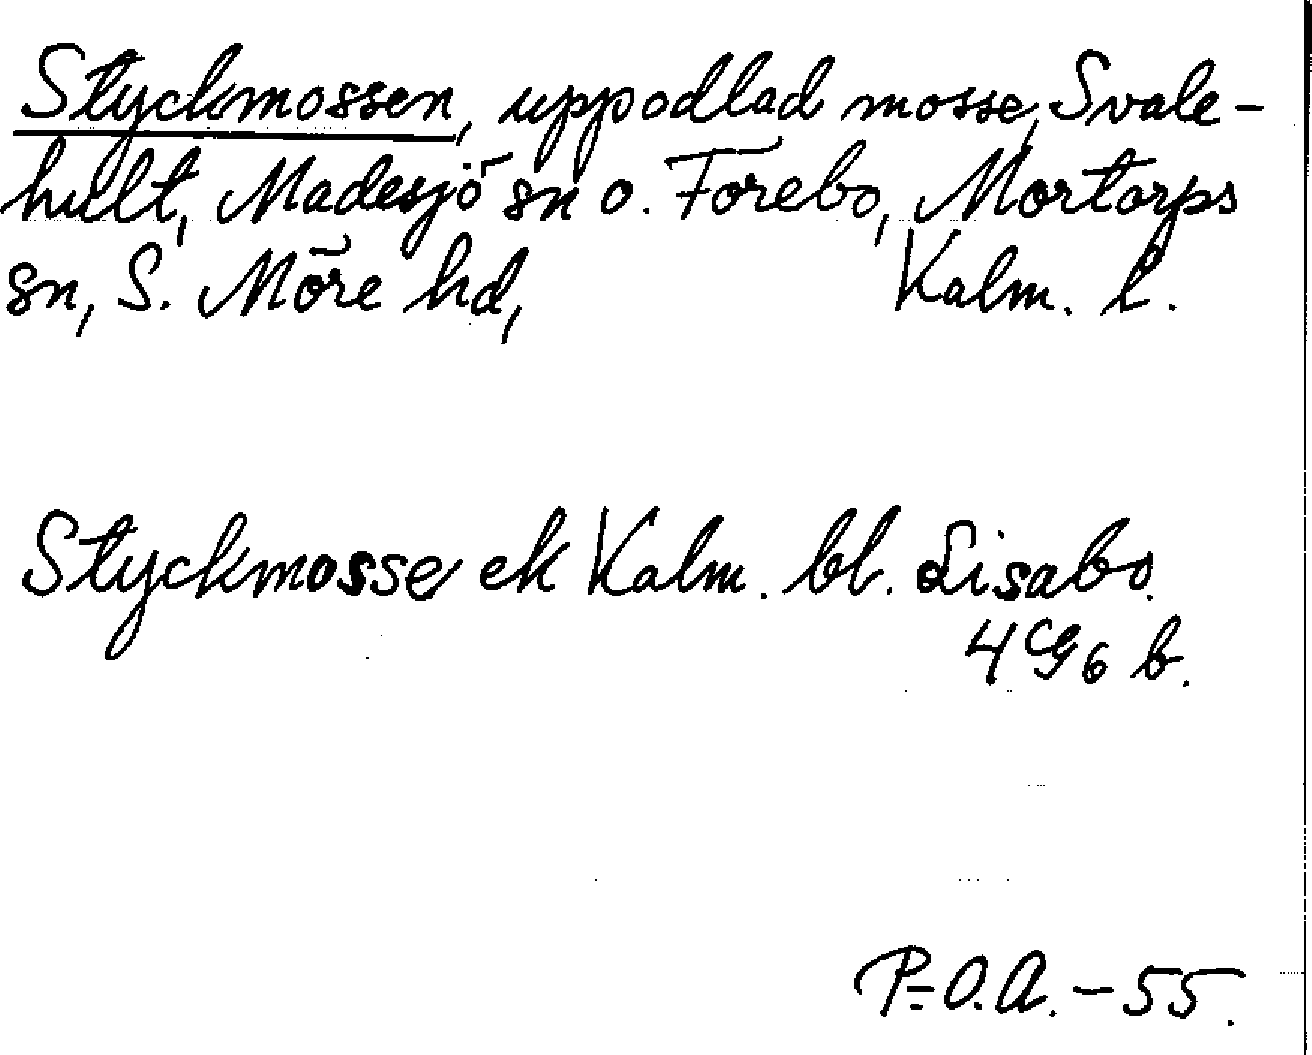 Styckmossen, uppodlad mosse, Svale-
hult, Madesjö sn o. Förebo, Mortorps
sn, S. Möre hd, Kalm. l.
Styckmosse ek Kalm. bl. Lisabo.
4 G 6 b.
P.-O.A. -55.